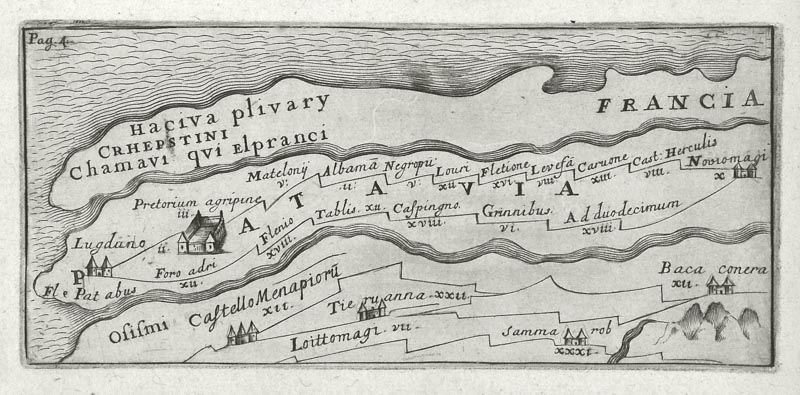 Pag. 4.
Haciva plivary
FRANCIA
CRHEPSTINI
Chamavi qvi Elpranci
Matelonij
v.
Albamã
ii.
Negropũ
v.
Louri
xii.
Fletione
xvi.
Levefã
viii.
Caruone
xiii.
Cast: Herculis
viii.
Noviomagi
x
Pretorium agripine
iii.
PATAVIA
Lugduno
ii.
Flenio
xviii.
Tablis. xii.
Caspingno.
xviii.
Grinnibus.
vi.
Ad duodecimum
xviii.
Foro adri
xii.
Fl e Pat abus
Osismi
Castello Menapiorũ
xii.
Tie ru anna. xxii
Baca conera
xii.
Loittomagi. vii.
Samma rob
xxxi.